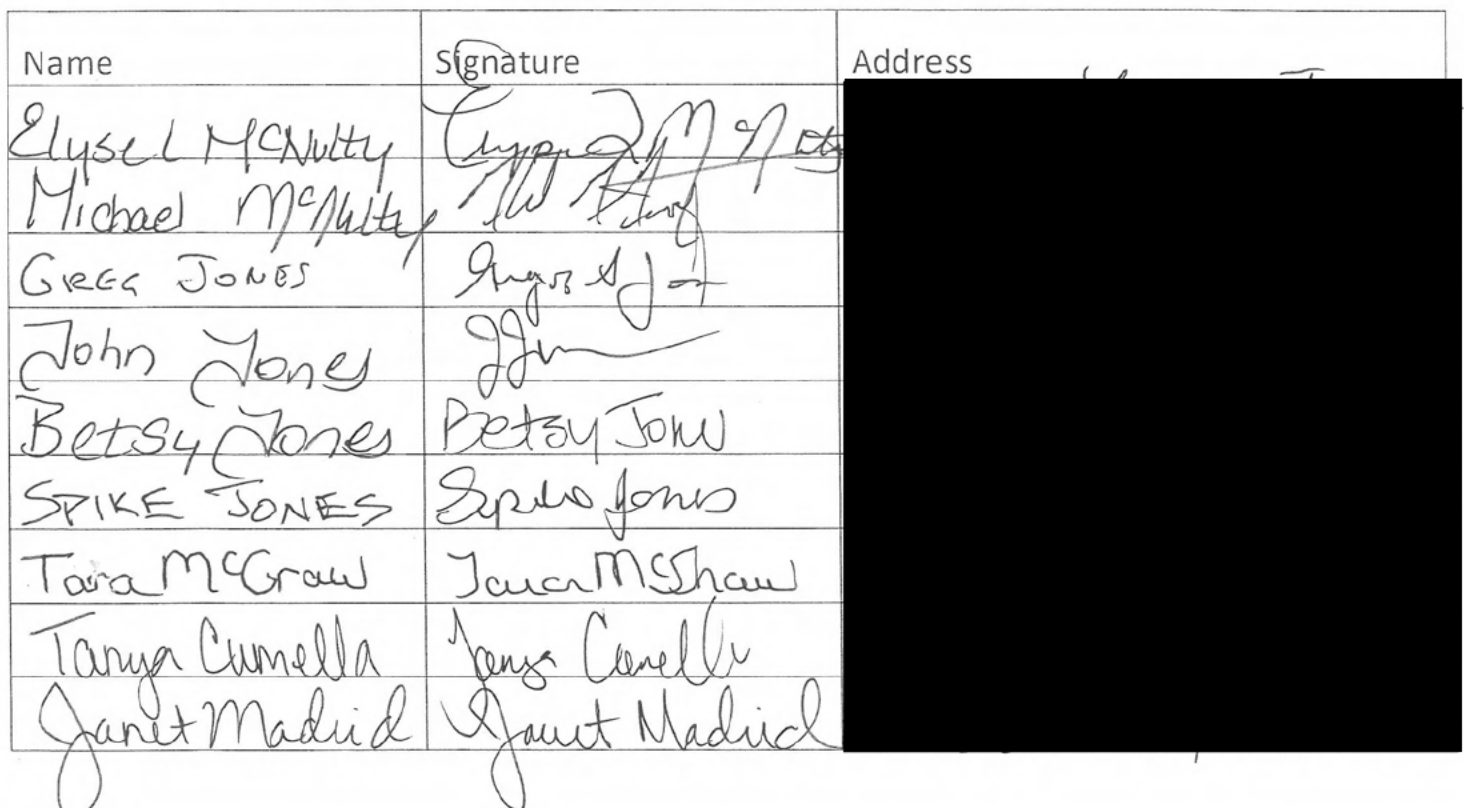 Name Signature Address
Elysel McNulty
Michael McNulty
GREG JONES
John Jones
Betsy Jones Betsy Jones
SPIKE JONES Spike Jones
Tara McGraw Tara McGraw
Tanya Cumella Tanya Cumella
Janet Madrid Janet Madrid